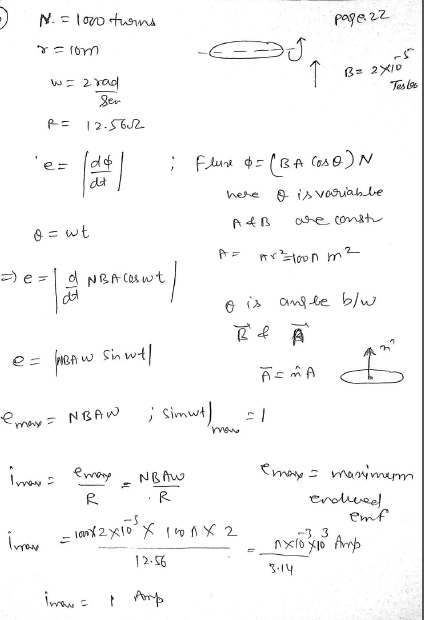 N. = 1000 turns
page 22
r = 10m
w = 2 rad
Sec
B = 2×10⁻⁵
Tesla
R = 12.56Ω
e = |dφ/dt| ; Flux φ = (BA Cosθ) N
here θ is variable
A & B are const
θ = wt
A = πr² = 100π m²
=> e = |d/dt NBA Cos wt|
θ is angle b/w
B⃗ & A⃗
e = |NBAw Sin wt|
n̂
A⃗ = n̂ A
emax = NBAW ; Sinwt)max = 1
imax = emax/R = NBAW/R
emax = maximum
induced
emf
imax = 1000×2×10⁻⁵ × 100π × 2 / 12.56 = π×10⁻³×10³ / 3.14 Amp
imax = 1 Amp